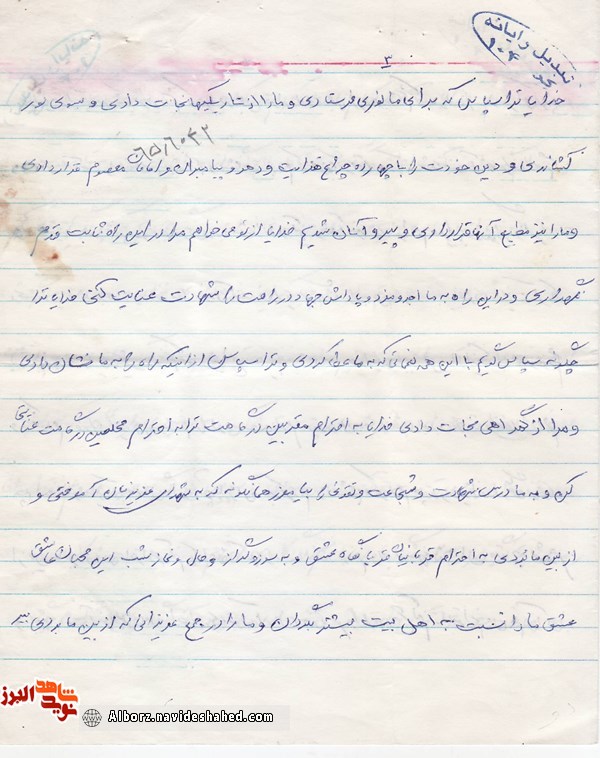 تبدیل رایانه
۳
خدایا ترا سپاس که برای ما نوری فرستادی و ما را از تاریکیها نجات دادی و بسوی نور
۶۵/۶۰۴۲
کشاندی و دین خودت را با چهارده چراغ هدایت و دهر و پیامبران و امامان معصوم قرار دادی
و ما را نیز مطیع آنها قرار دادی و پیرو آنان شدیم خدایا از تو می خواهم مرا در این راه ثابت قدم
نگهداری و در این راه به ما اجر و مزد و پاداش جهاد در راهت را شهادت عنایت کنی خدایا ترا
چگونه سپاس گویم با این همه نعماتی که به ما عطا کردی و ترا سپاس از اینکه راه را به ما نشان دادی
و مرا از گمراهی نجات دادی خدایا به احترام مقربین درگاهت ترا به احترام مخلصین درگاهت عنایتی
کن و به ما درس شهادت و شجاعت و تقوی را بیاموز همانگونه که به شهدای عزیزمان آموختی و
از بین ما بردی به احترام قربانیان قربانگاه عشق و به سوز و گداز و حال و نماز شب این محبان عاشق
عشق ما را نسبت به اهل بیت بیشتر بگردان و ما را در جمع عزیزانی که از بین ما بردی نیز
شاهد
نوید البرز
Alborz.navideshahed.com